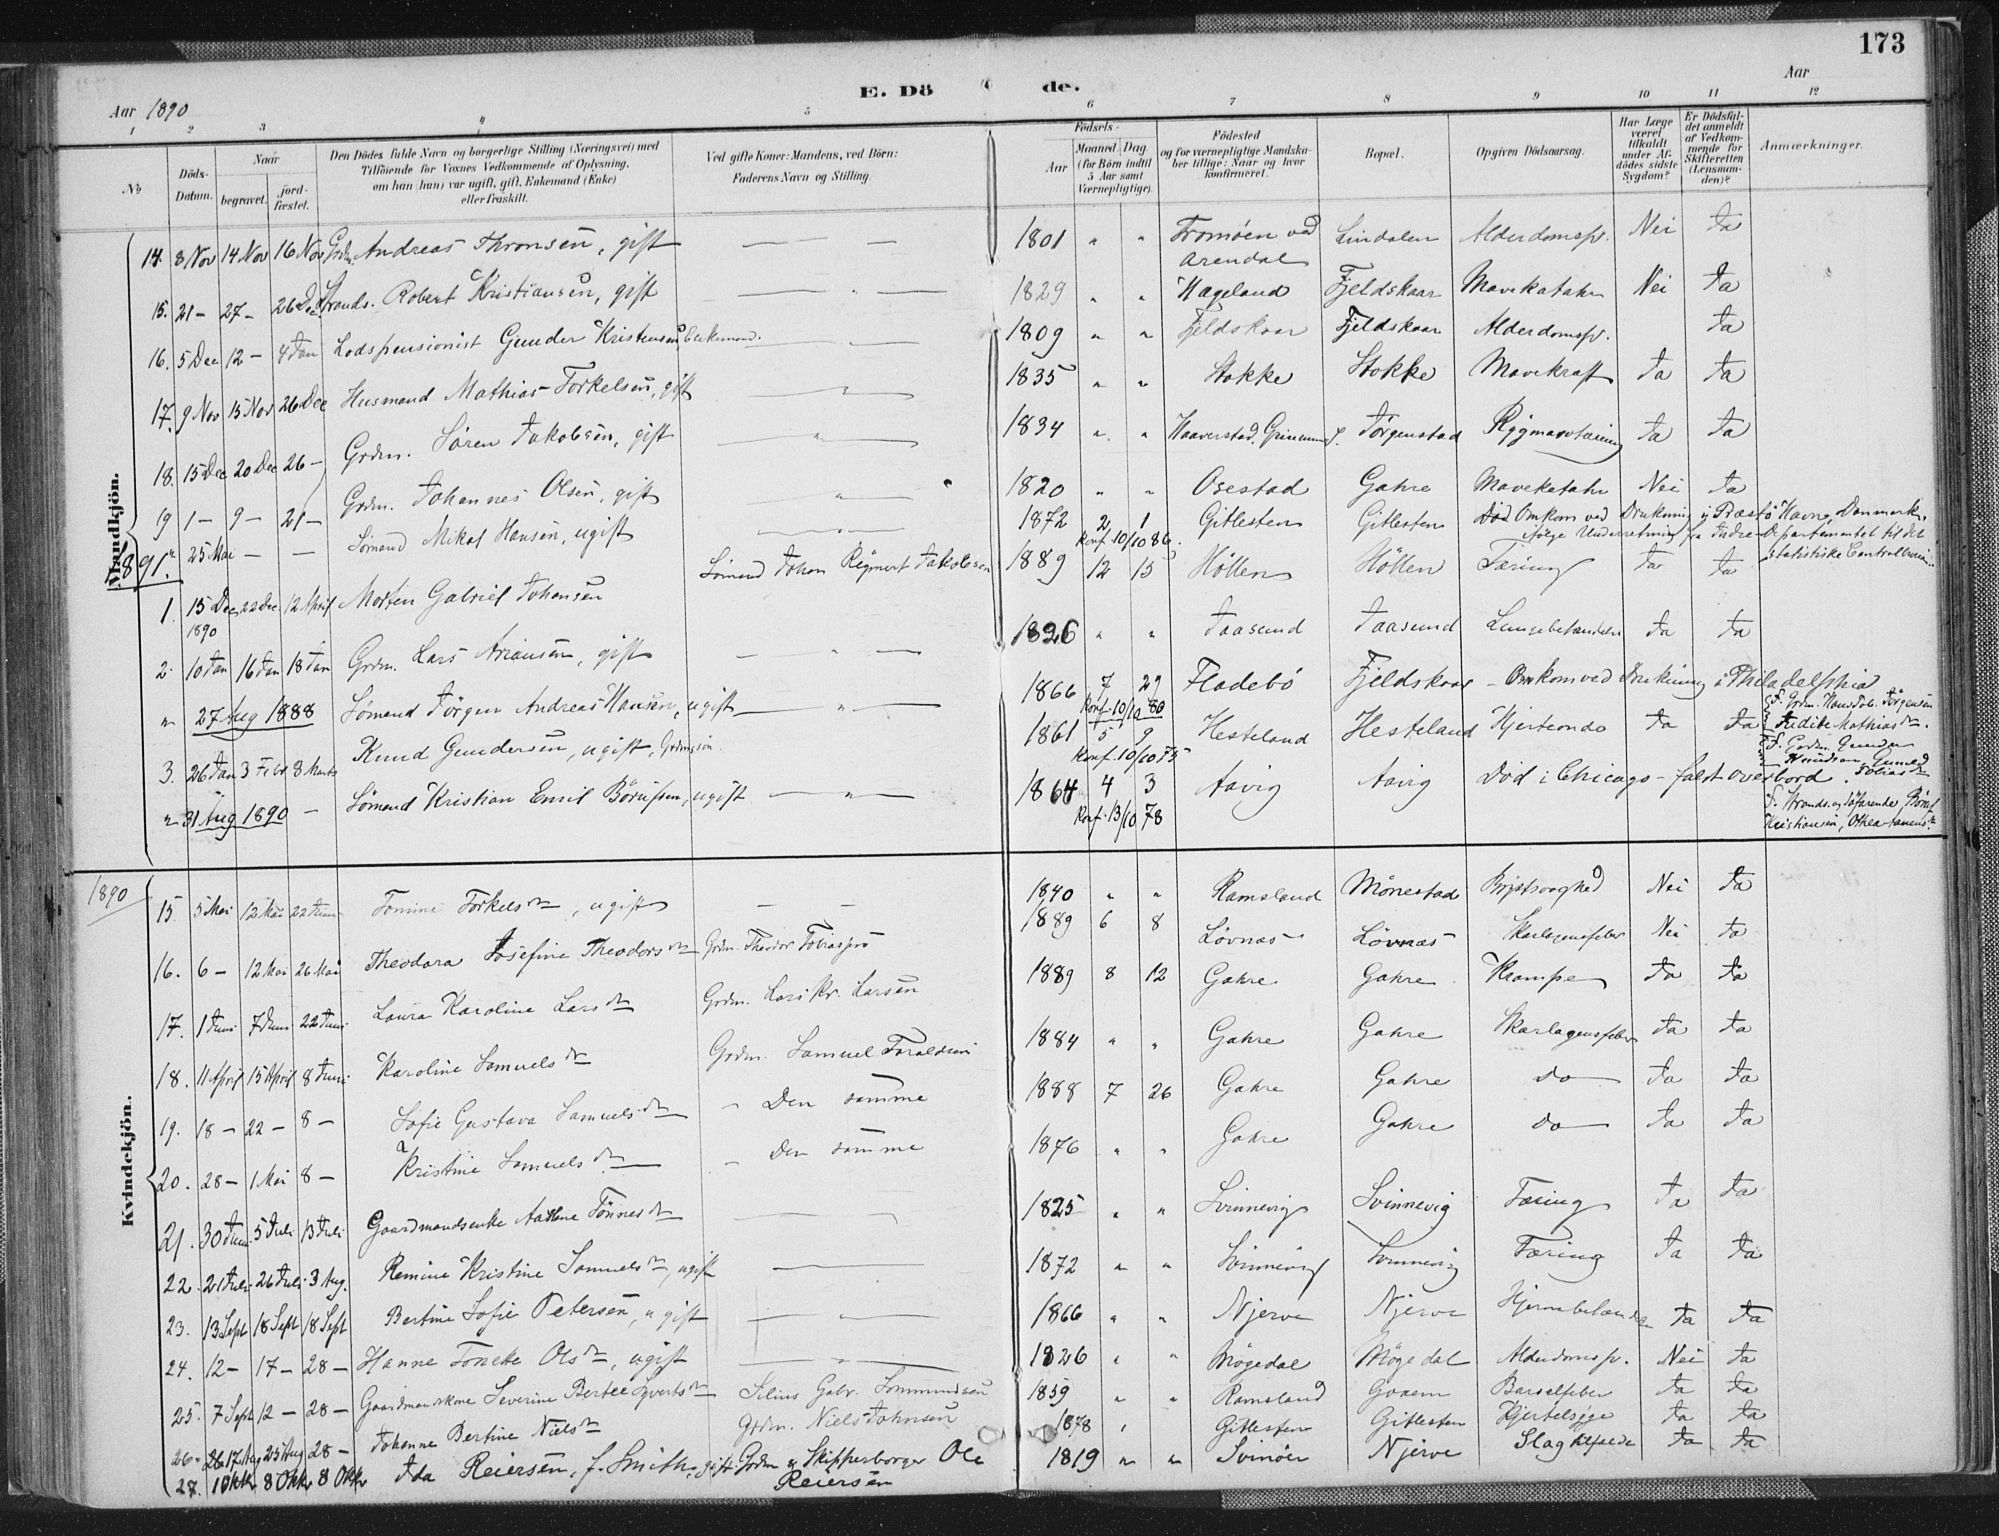 173
E. Dö de.
Aar 1890
Aar
1 2 3 4 5 6 7 8 9 10 11 12
No
Döds-Datum.
Naar
begravet.
jord-fæstet.
Den Dödes fulde Navn og borgerlige Stilling (Næringsvei) med Tilföiende for Voxnes Vedkommende af Oplysning, om han (hun) var ugift, gift, Enkemand (Enke) eller fraskilt.
Ved gifte Koner: Mandens, ved Börn: Faderens Navn og Stilling.
Födsels-
Aar
Maaned. Dag. (for Börn indtil 5 Aar samt Værnepligtige).
Födested og for værnepligtige Mandskaber tillige: Naar og hvor konfirmeret.
Bopæl.
Opgiven Dödsaarsag.
Har Læge været tilkaldt under Afdödes sidste Sygdom?
Er Dödsfaldet anmeldt af Vedkommende for Skifteretten (Lensmanden)?
Anmærkninger.
Mandkjön.
14. 8 Nov 14 Nov 16 Nov Grdm. Andreas Thronsen, gift — — 1801 " " Tromöen ved Arendal Lindalen Alderdomssv. Nei Ja
15. 21 - 27 - 26 Dec Strands. Robert Kristiansen, gift — " — 1829 " " Hægeland Fjeldskaar Mavekatahr Nei Ja
16. 5 Dec 12 - 4 Jan Lodspensionist Gunder Kristensen, Enkemand. — " — 1809 " " Fjeldskaar Fjeldskaar Alderdomssv. Ja
17. 9 Nov 15 Nov 26 Dec Husmand Mathias Torkelsen, gift — " — 1835 " " Stokke Stokke Mavekræft Ja Ja
18. 15 Dec 20 Dec 26 - Grdm. Sören Jakobsen, gift — " — 1834 " " Haaverstad, Grimenes S. Jörgenstad Rygmarvtæring Ja Ja
19 1 - 9 - 21 - Grdm. Johannes Olsen, gift — " — 1820 " " Osestad Gahre Mavekatahr Nei Ja
" 25 Mai — — Sömand Mikal Hansen, ugift — " — 1872 2 1 Gitlesten Gitlesten Död Omkom ved Drukning i Præstö Havn, Danmark,
Konf. 10/10 86. fölge Underretning fra Indre-Departementet til det statistiske Centralbureau.
1891.
1. 15 Dec 1890 22 Dec 12 April Morten Gabriel Johansen Sömand Johan Reginert Jakobsen 1889 12 15 Höllen Höllen Tæring Ja Ja
2. 10 Jan 16 Jan 18 Jan Grdm. Lars Ariansen, gift — " — 1826 " " Taasund Taasund Lungebetændelse Ja Ja
" 27 Aug 1888 Sömand Jörgen Andreas Hansen, ugift — " — 1866 7 29 Fladebö Fjeldskaar - Omkom ved Drukning i Philadelphia
Konf. 10/10 80 F. Grdm. Hans Jörgensen Judite Mathiasdtr.
3. 26 Jan 3 Febr 8 Marts Knud Gundersen, ugift, Grdmssön 1861 5 9 Hesteland Hesteland Hjerteondt Ja Ja
Konf. 10/10 75 F. Grdm. Gunder Knudsen, Gunhild Tobiasdtr
" 31 Aug 1890 — Sömand Kristian Emil Börufsen, ugift — " — 1864 4 3 Aavig Aavig Död i Chicago - faldt overbord.
Konf. 13/10 78 F. Strands. og Söfarende Böruf Kristiansen, Othea
Kvindekjön.
1890
15 5 Mai 12 Mai 22 Juni Tomine Torkelsdtr, ugift — — 1840 " " Ramsland Mönestad Brystsvaghed Nei Ja
16. 6 - 12 Mai 26 Mai Theodora Josefine Theodorsdtr Grdm. Theodor Tobiassen 1889 6 8 Lövnæs Lövnæs Skarlagensfeber Nei Ja
17. 1 Juni 7 Juni 22 Juni Laura Karoline Larsdtr Grdm. Lars Kr. Larsen 1889 8 12 Gahre Gahre Krampe Ja Ja
18. 11 April 15 April 8 Juni Karoline Samuelsdtr Grdm. Samuel Taraldsen 1884 " " Gahre Gahre Skarlagensfeber Ja Ja
19. 18 - 22 - 8 - Sofie Gustava Samuelsdtr - Den samme 1888 7 26 Gahre Gahre Do Ja Ja
20. 28 - 1 Mai 8 - Kristine Samuelsdtr - Den samme 1876 " " Gahre Gahre Do Ja Ja
21. 30 Juni 5 Juli 13 Juli Gaardmandsenke Aasline Tönnesdtr — 1825 " " Svinnevig Svinnevig Tæring Ja Ja
22. 21 Juli 26 Juli 3 Aug. Remine Kristine Samuelsdtr, ugift — 1872 " " Svinnevig Svinnevig Tæring Ja Ja
23. 13 Sept 18 Sept 18 Sept Bertine Sofie Petersen, ugift — 1866 " " Njerve Njerve Hjernebetændelse Ja Ja
24. 12 - 17 - 28 - Hanne Tomeke Olsdtr, ugift — " — 1826 " " Mögedal Mögedal Alderdomssv. Nei Ja
25. 7 Sept 12 - 28 - Gaardmandskone Severine Bertee Syvertsdtr Silius Gabr. Sommundsen 1859 " " Ramsland Goaem Barselfeber Ja Ja
26. 17 Aug 25 Aug 28 - Johanne Bertine Nielsdtr Grdm. Niels Johnsen 1878 " Gitlesten Gitlesten Hjertelyge Ja Ja
27. 1 Oktbr 8 Oktbr 8 Oktbr Ida Reiersen, f. Smith, gift Grdm. og Skipperborger Ole Reiersen 1819 " " Svinöer Njerve Slagtilfælde Ja Ja